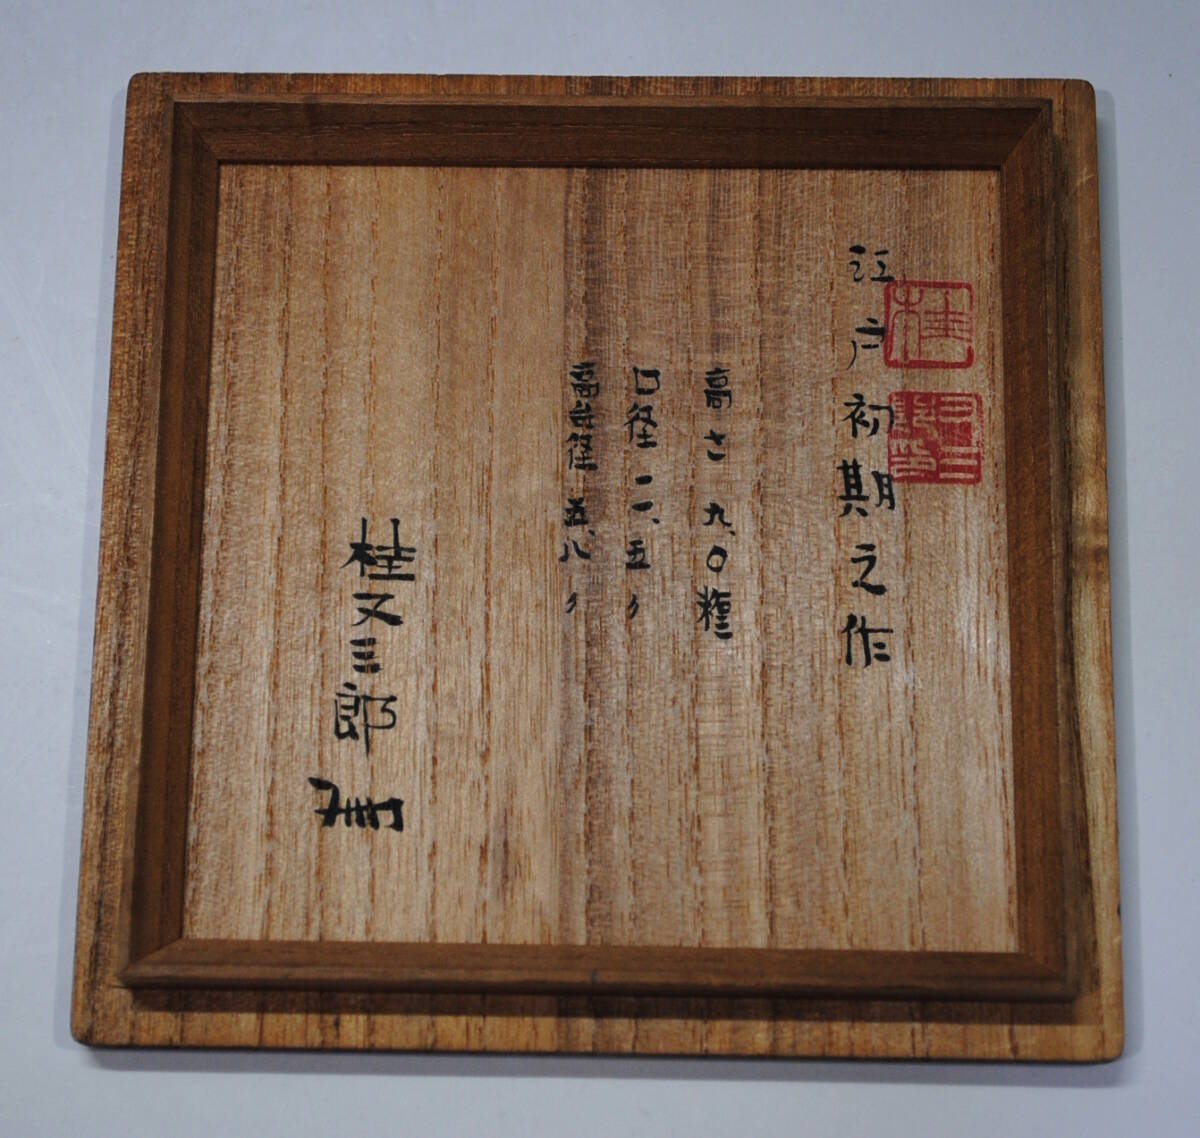 江戸初期之作
高さ 九、〇糎
口径 一一、五〃
高台径 五、八〃
桂又三郎
桂